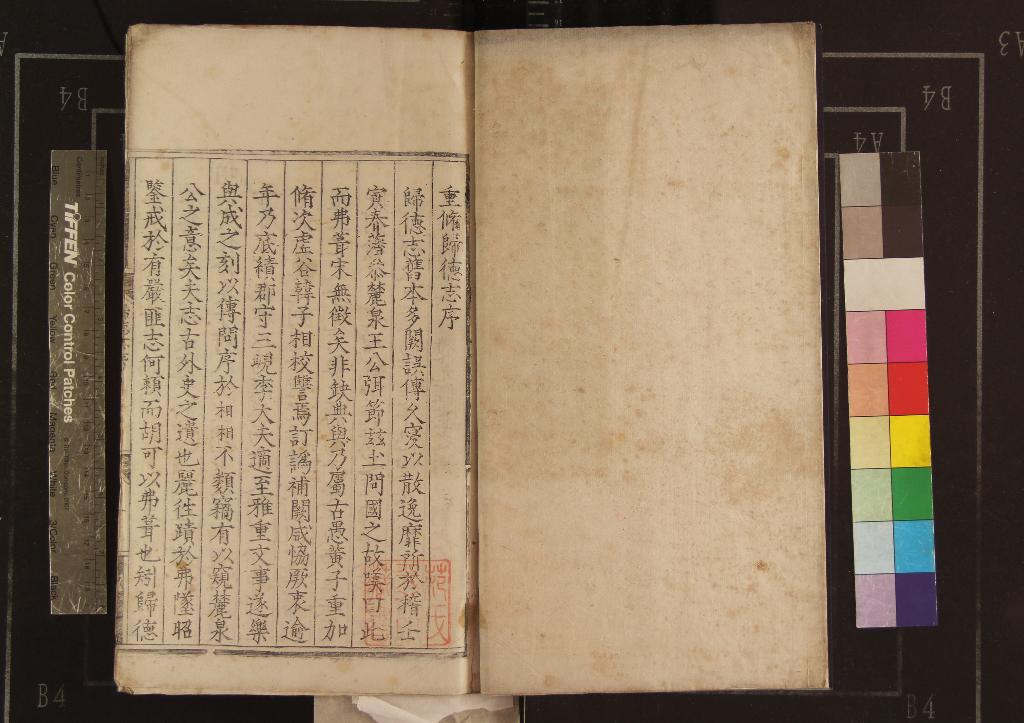 重脩歸德志序
歸德志舊本多闕誤傳久寖以散逸靡所於稽壬
寅春蒲㳟麓泉王公弭節玆土問國之故嘆曰此
而弗葺宋無徵矣非缺典與乃屬古愚黃子重加
脩次虛谷韓子相校讐焉訂譌補闕咸恊厥衷逾
年乃底績郡守三峴李大夫適至雅重文事遂樂
與成之刻以傳問序於相相不類竊有以窺麓泉
公之意矣夫志古外史之遺也麗徃蹟於弗墜昭
鑒戒於有嚴匪志何賴而胡可以弗葺也矧歸德
TIFFEN Color Control Patches
Centimetres
Blue
Green
Yellow
Red
Magenta
White
3/Color
Black
B4
B4
A4
A3
B4
B4